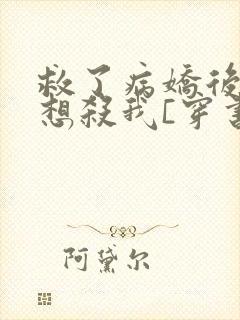 救了病嬌後
想殺我[穿書
阿黛尔